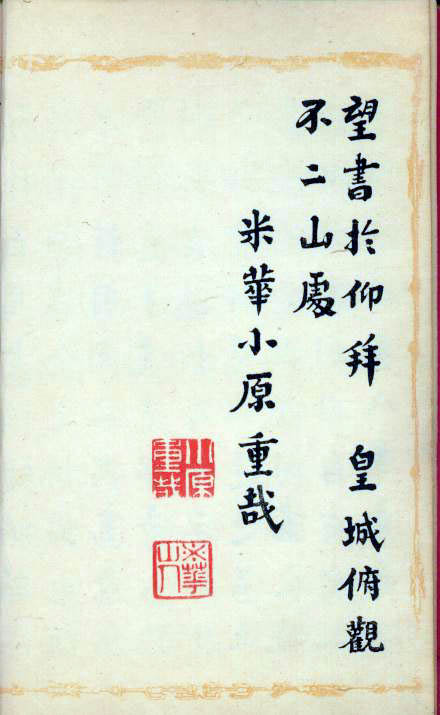 望書於仰拜　皇城俯觀
不二山處
米華小原重哉
小原重哉
米華山人